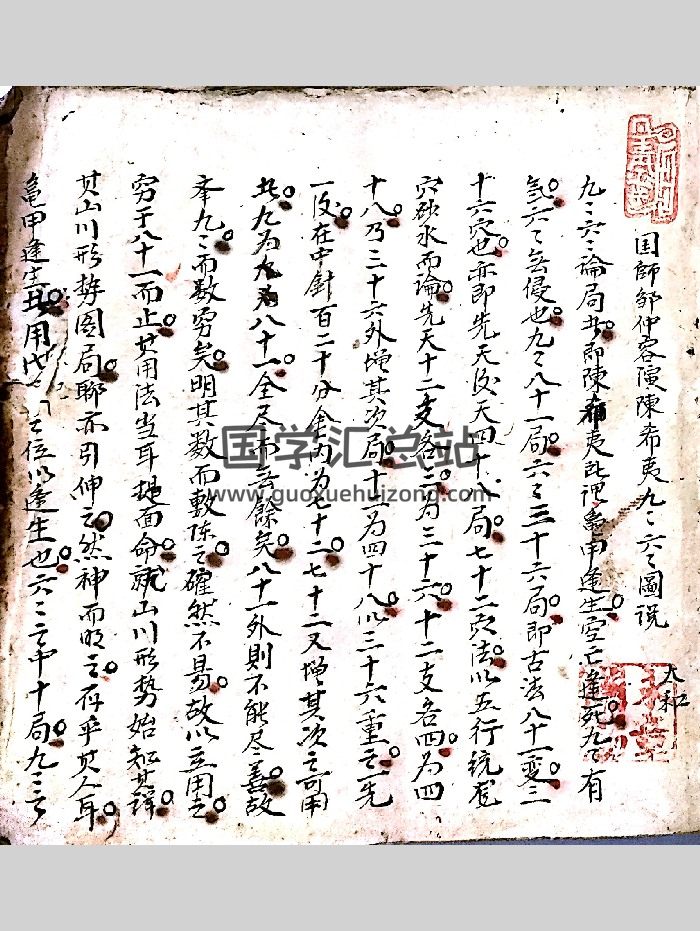 国師邹仲容演陳希夷九〻六〻圖説
太和
九〻六〻論局者即陳希夷所謂龜甲逢生空亡逢死九〻有
氣六〻無侵也九〻八十一局六〻三十六局即古法八十一变三
十六穴也亦即先天後天四十八局七十二穴法以五行統龍
穴砂水而論先天十二支各三为三十六十二支各四为四
十八乃三十六外增其次局十二为四十八以三十六重之一先
一後在中針百二十分金内为七十二七十二又增其次之可用
者九为九〻八十一全足而無餘矣八十一外則不能尽善故
本九〻而数穷矣明其数而敷陈之確然不易故以立用之
穷于八十一而止其用法当耳提面命就山川形势始知其詳
其山川形势图局聊亦引伸之然神而明之存乎其人耳
龜甲逢生者用 之位以逢生也六〻之中十局九〻之
国学汇总站
www.guoxuehuizong.com